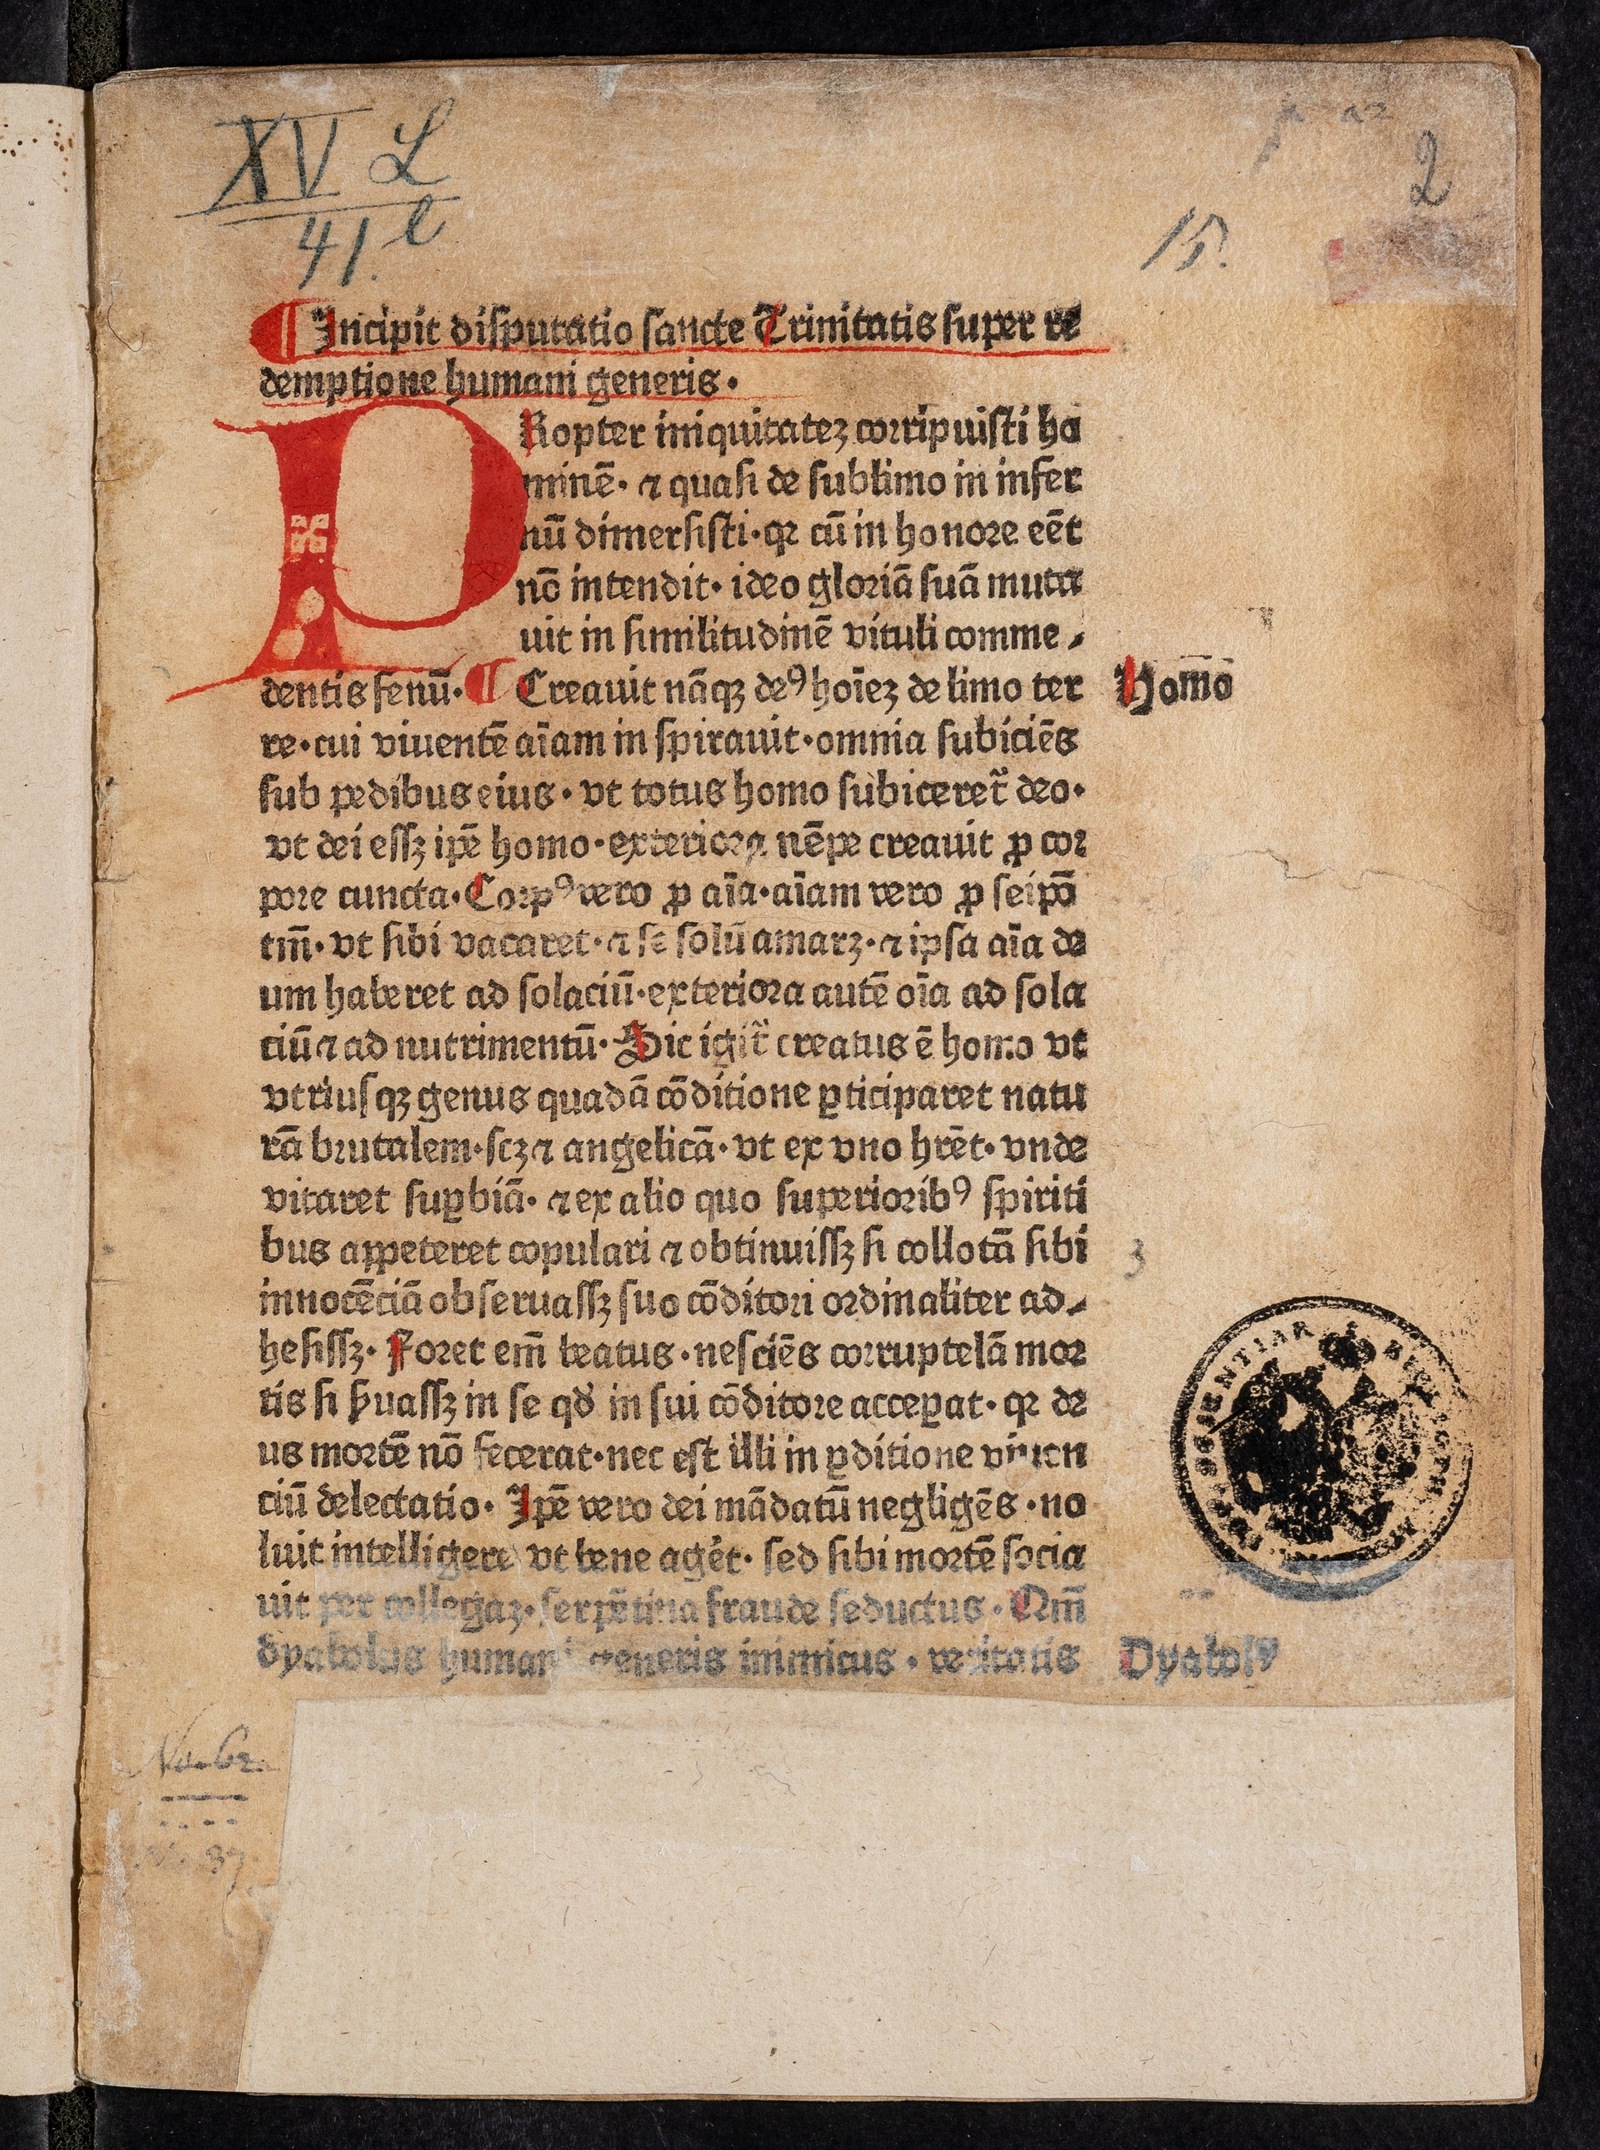 XV L
41. l
2
15.
¶ Incipit disputatio sancte Trinitatis super re
demptione humani generis·
PRopter iniquitatez corripuisti ho
minē· ⁊ quasi de sublimo in infer
nū dimersisti·qꝛ cū in honore eēt
nō intendit· ideo gloriā suā muta
uit in similitudinē vituli comme⸗
dentis fenū· ¶ Creauit nāqꝫ deꝰ hoīeꝫ de limo ter
Homo
re·cui viuentē aīam in spirauit·omnia subiciēs
sub pedibus eius· vt totus homo subiceret̃ deo·
vt dei essꝫ ipē homo·exteriora nēpe creauit ꝓ cor
pore cuncta·Corpꝰ vero ꝓ aīa·aīam vero ꝓ seipō
tm̄· vt sibi vacaret·⁊ se solū amarꝫ·⁊ ipsa aīa de
um haberet ad solaciū·exteriora autē oīa ad sola
ciū ⁊ ad nutrimentū· Sic igit̃ creatus ē homo vt
vtriusqꝫ genus quadā cōditione ꝑticiparet natu
rā brutalem·scꝫ ⁊ angelicā· vt ex vno hr̄et· vnde
vitaret suꝑbiā· ⁊ ex alio quo superioribꝰ spiriti
bus appeteret copulari ⁊ obtinuissꝫ si collotā sibi
innocēciā obseruassꝫ suo cōditori ordinaliter ad⸗
hesissꝫ· Foret em̄ beatus·nesciēs corruptelā mor
tis si ẜuassꝫ in se qď in sui cōditore acceꝑat· qꝛ de
us mortē nō fecerat·nec est illi in ꝑditione viuen
ciū delectatio· Ipē vero dei mādatū negligēs·no
luit intelligere vt bene agēt· sed sibi mortē socia
uit per collegaꝫ·serpētina fraude seductus· Qm̄
dyabolus humani generis inimicus· veritatis
Dyabolꝰ
No. 62
37